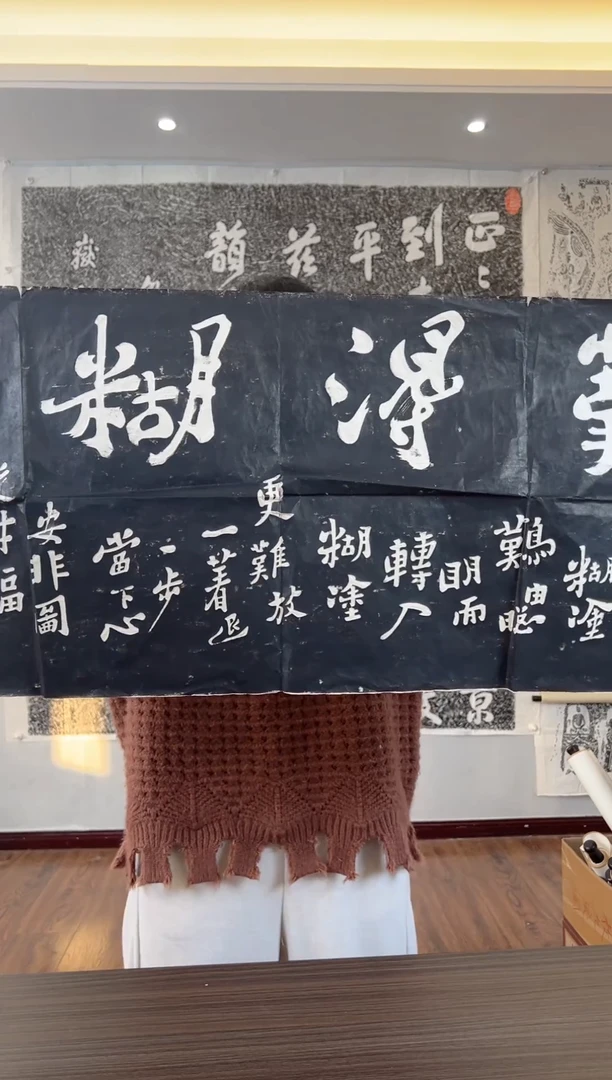 得糊
糊塗
難由聰
明而
轉入
糊塗
更難放
一著退
一步
當下心
安非圖
福
正
到
平
茲
韻
嶽
景